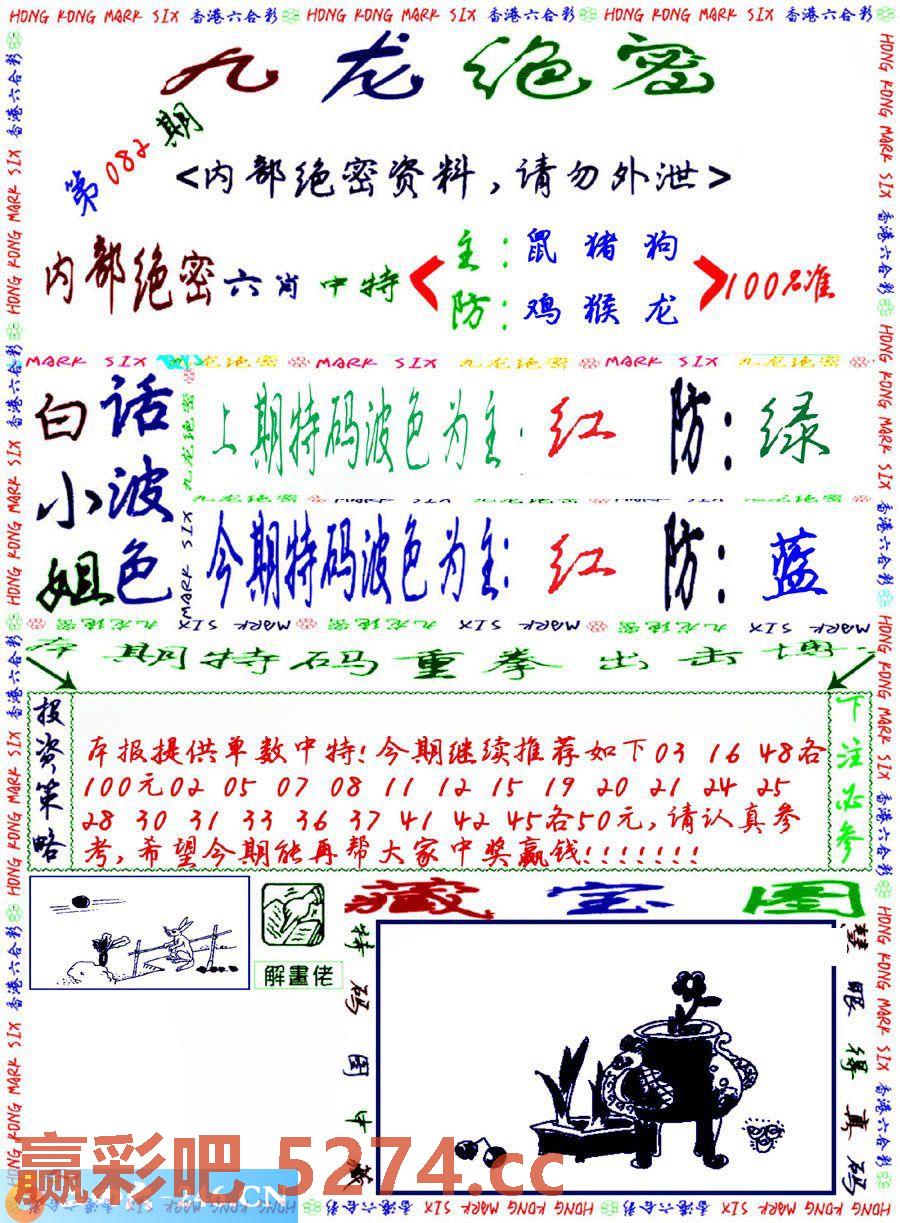 HONG KONG MARK SIX 香港六合彩 HONG KONG MARK SIX 香港六合彩 HONG KONG MARK SIX 香港六合彩
九龙绝密
第082期
<内部绝密资料,请勿外泄>
内部绝密六肖中特
主:鼠猪狗
防:鸡猴龙
100%准
MARK SIX 九龙绝密 MARK SIX 九龙绝密 MARK SIX 九龙绝密
白话
小波
姐色
上期特码波色为主:红 防:绿
今期特码波色为主:红 防:蓝
本期特码重拳出击博
投资策略
本报提供单数中特!今期继续推荐如下03 16 48各
100元02 05 07 08 11 12 15 19 20 21 24 25
28 30 31 33 36 37 41 42 45各50元,请认真参
考,希望今期能再帮大家中奖赢钱!!!!!!!
下注必参
解畫佬
藏宝图
特码图中藏
慧眼得真码
赢彩吧 5274.cc